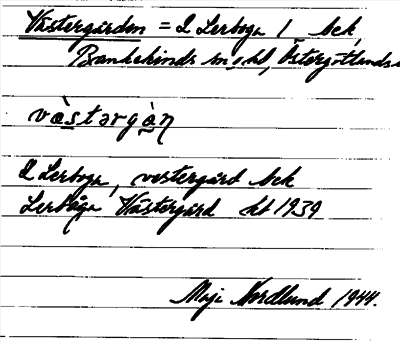 Västergården = 2 Lerboga 1 bck,
Bankekinds sn o hd, Östergötlands
västərgàɳ
2 Lerboga, vestergård bck
Lerboga Västergård kb 1939
Maji Nordlund 1944.